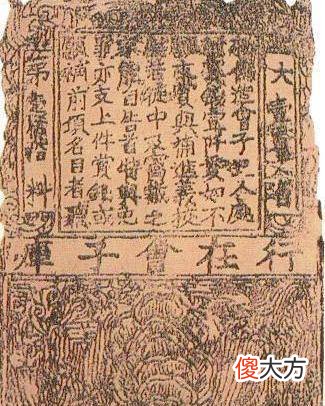 大壹貫文省
偽造會子犯人處
斬賞錢壹阡貫如不
願支賞與補進義校
尉若徒中及窩藏之
家能自告首特與免
罪亦支上件賞錢或
願補前項名目者聽
第壹佰拾料
行在會子庫
傻大方